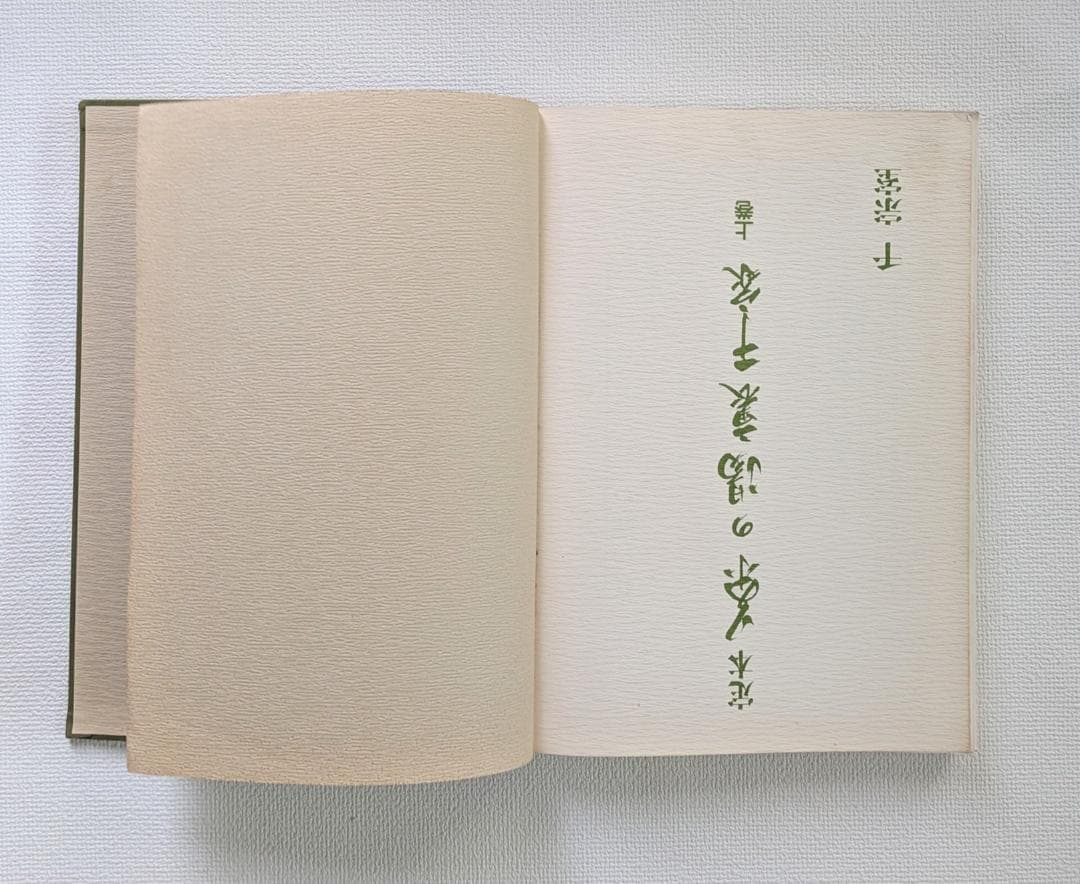 定本 茶の湯裏千家 上巻
千 宗室